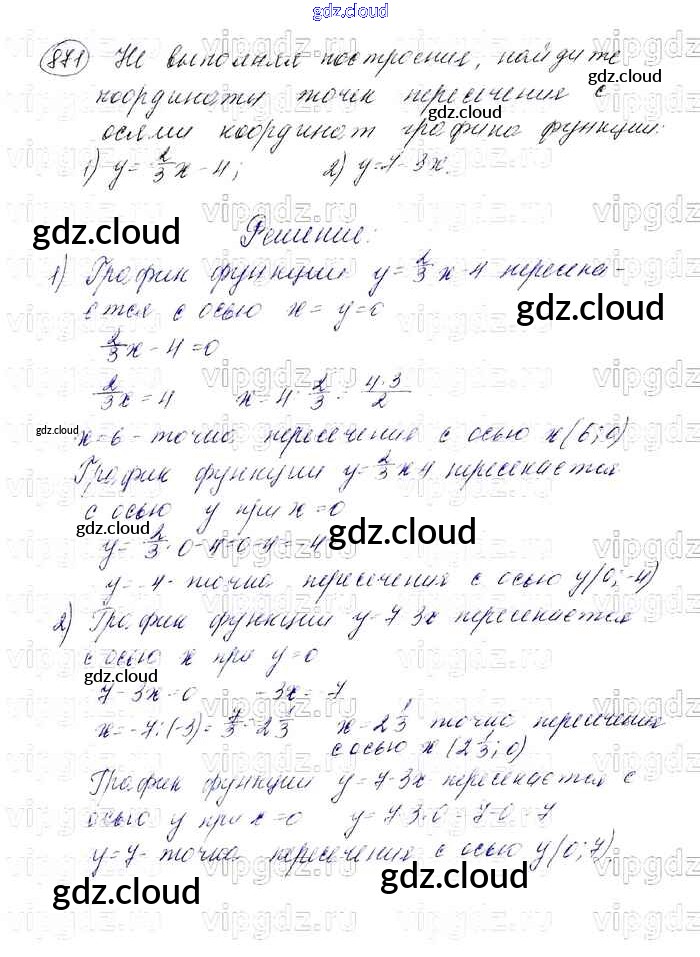 gdz.cloud
871 Не выполняя построения, найдите
gdz.cloud
координаты точек пересечения с
gdz.cloud
осями координат графика функции:
1) y = 2/3 x - 4; 2) y = 7 - 3x.
gdz.cloud
Решение:
1) График функции y = 2/3 x - 4 пересека-
ется с осью x = y = 0
gdz.cloud
2/3 x - 4 = 0
2/3 x = 4 x = 4 : 2/3 = 4·3/2
gdz.cloud
x = 6 - точка пересечения с осью x (6; 0)
График функции y = 2/3 x 4 пересекается
с осью y при x = 0
gdz.cloud
gdz.cloud
y = 2/3 · 0 - 4 = 0 - 4 = -4
y = -4 - точка пересечения с осью y (0; -4)
2) График функции y = 7 3x пересекается
с осью x при y = 0
gdz.cloud
7 - 3x = 0 -3x = -7
x = -7 : (-3) = 7/3 = 2 1/3 x = 2 1/3 точка пересечения
с осью x (2 1/3; 0)
gdz.cloud
График функции y = 7 - 3x пересекается с
осью y при x = 0 y = 7 - 3·0 = 7 - 0 = 7
y = 7 - точка пересечения с осью y (0; 7)
gdz.cloud
gdz.cloud